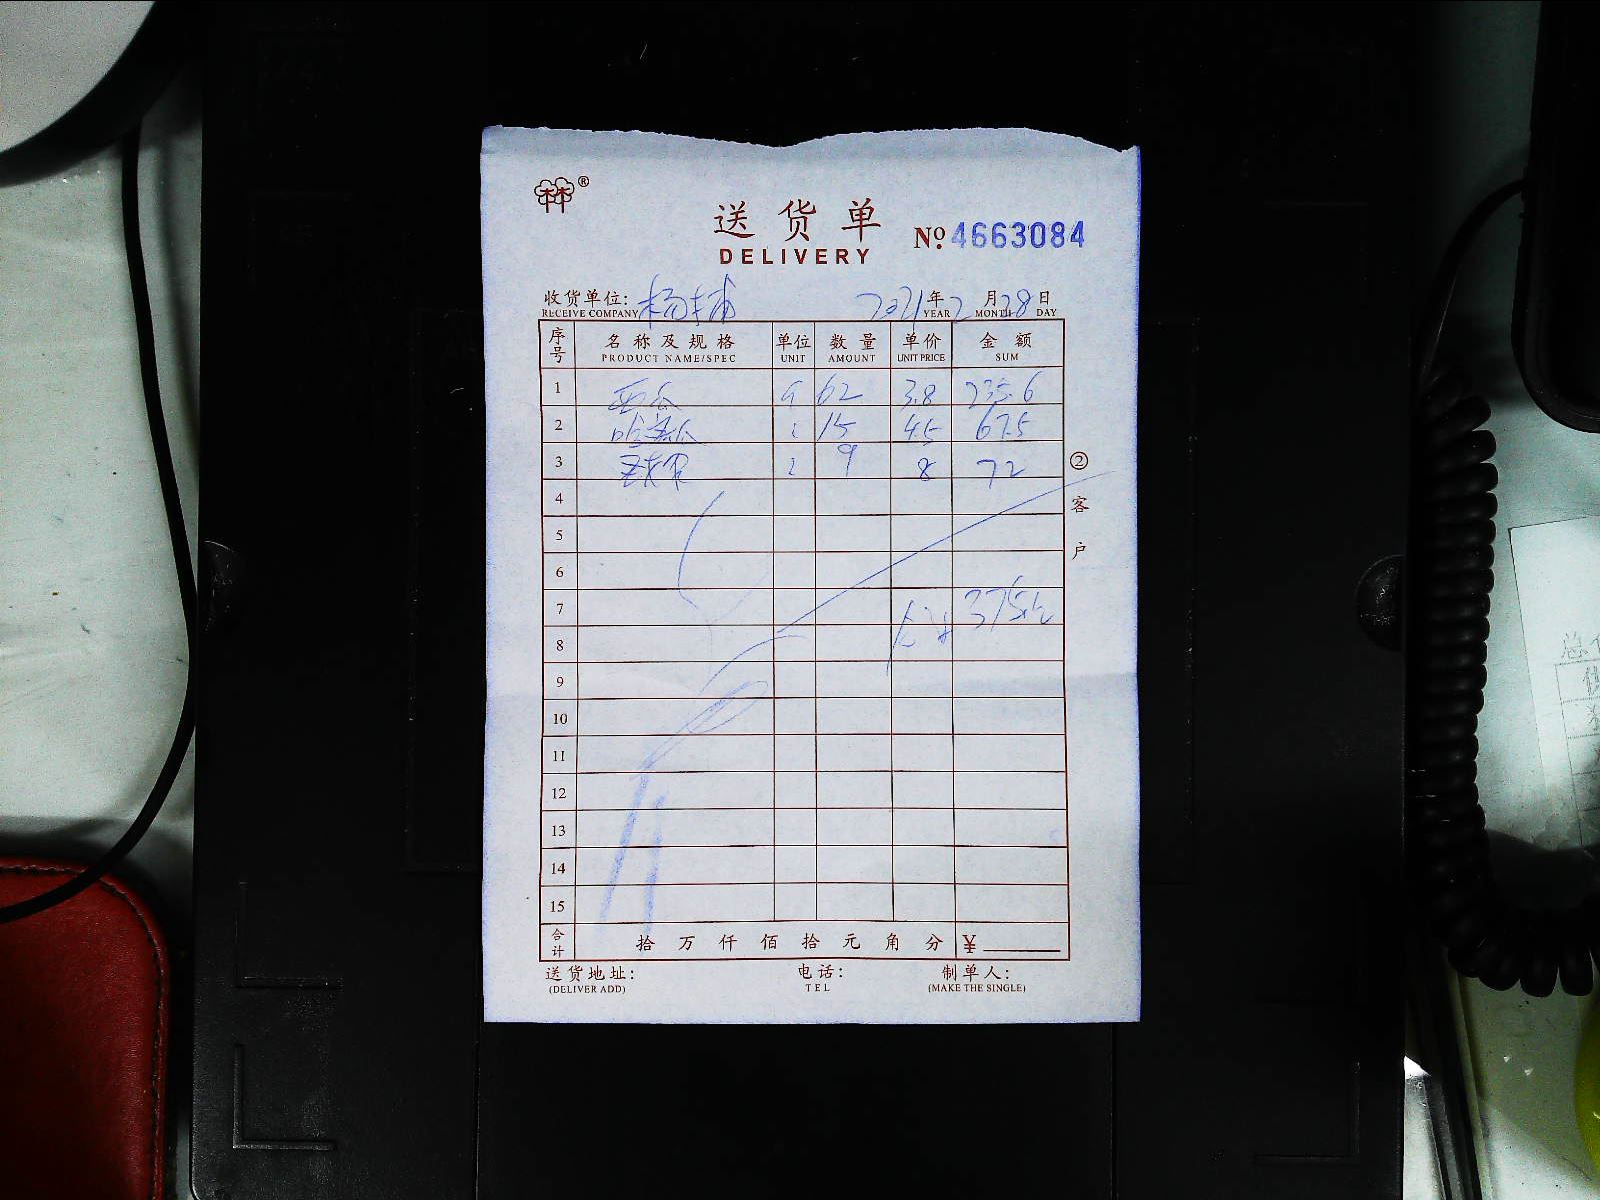 林®
送货单
DELIVERY
№ 4663084
收货单位: 2021年2月28日
RECEIVE COMPANY YEAR MONTH DAY
序号 名称及规格 单位 数量 单价 金额
PRODUCT NAME/SPEC UNIT AMOUNT UNIT PRICE SUM
1 西瓜 62 3.8 235.6
2 哈密瓜 15 4.5 67.5
3 9 8 72
4
5
6
7 合计 375元
8
9
10
11
12
13
14
15
合计 拾万仟佰拾元角分 ¥
送货地址: 电话: 制单人:
(DELIVER ADD) TEL (MAKE THE SINGLE)
②客户